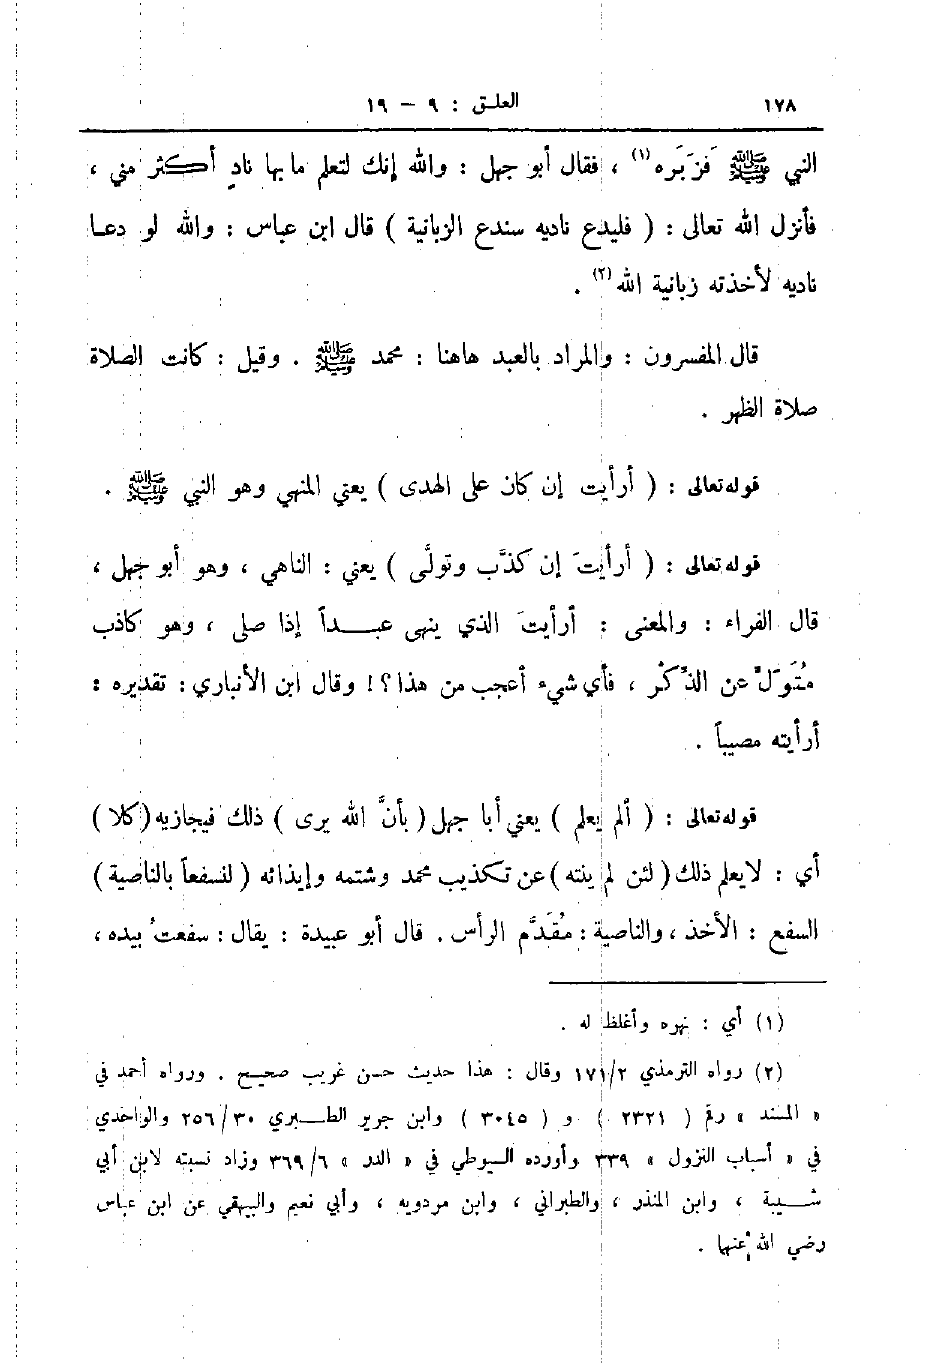 ١٧٨
العلق : ٩ – ١٩
النبي ﷺ فَزَبَره(١) ، فقال أبو جهل : والله إنك لتعلم ما بها نادٍ أكثر مني ،
فأنزل الله تعالى : ( فليدع ناديه سندع الزبانية ) قال ابن عباس : والله لو دعا
ناديه لأخذته زبانية الله(٢) .
قال المفسرون : والمراد بالعبد هاهنا : محمد ﷺ . وقيل : كانت الصلاة
صلاة الظهر .
قوله تعالى : ( أرأيت إن كان على الهدى ) يعني المنهي وهو النبي ﷺ .
قوله تعالى : ( أرأيتَ إن كذَّب وتولَّى ) يعني : الناهي ، وهو أبو جهل ،
قال الفراء : والمعنى : أرأيتَ الذي ينهى عبداً إذا صلى ، وهو كاذب
مُتَوَلٍّ عن الذِّكْر ، فأي شيء أعجب من هذا؟! وقال ابن الأنباري : تقديره :
أرأيته مصيباً .
قوله تعالى : ( ألم يعلم ) يعني أبا جهل ( بأنَّ الله يرى ) ذلك فيجازيه (كلا )
أي : لا يعلم ذلك ( لئن لم ينته ) عن تكذيب محمد وشتمه وإيذائه ( لنسفعاً بالناصية )
السفع : الأخذ ، والناصية : مُقَدَّم الرأس . قال أبو عبيدة : يقال : سفعتُ بيده ،
(١) أي : نهره وأغلظ له .
(٢) رواه الترمذي ١٧١/٢ وقال : هذا حديث حسن غريب صحيح . ورواه أحمد في
« المسند » رقم ( ٢٣٢١ ) و ( ٣٠٤٥ ) وابن جرير الطبري ٢٥٦/٣٠ والواحدي
في « أسباب النزول » ٣٣٩ وأورده السيوطي في « الدر » ٣٦٩/٦ وزاد نسبته لابن أبي
شيبة ، وابن المنذر ، والطبراني ، وابن مردويه ، وأبي نعيم والبيهقي عن ابن عباس
رضي الله عنهما .